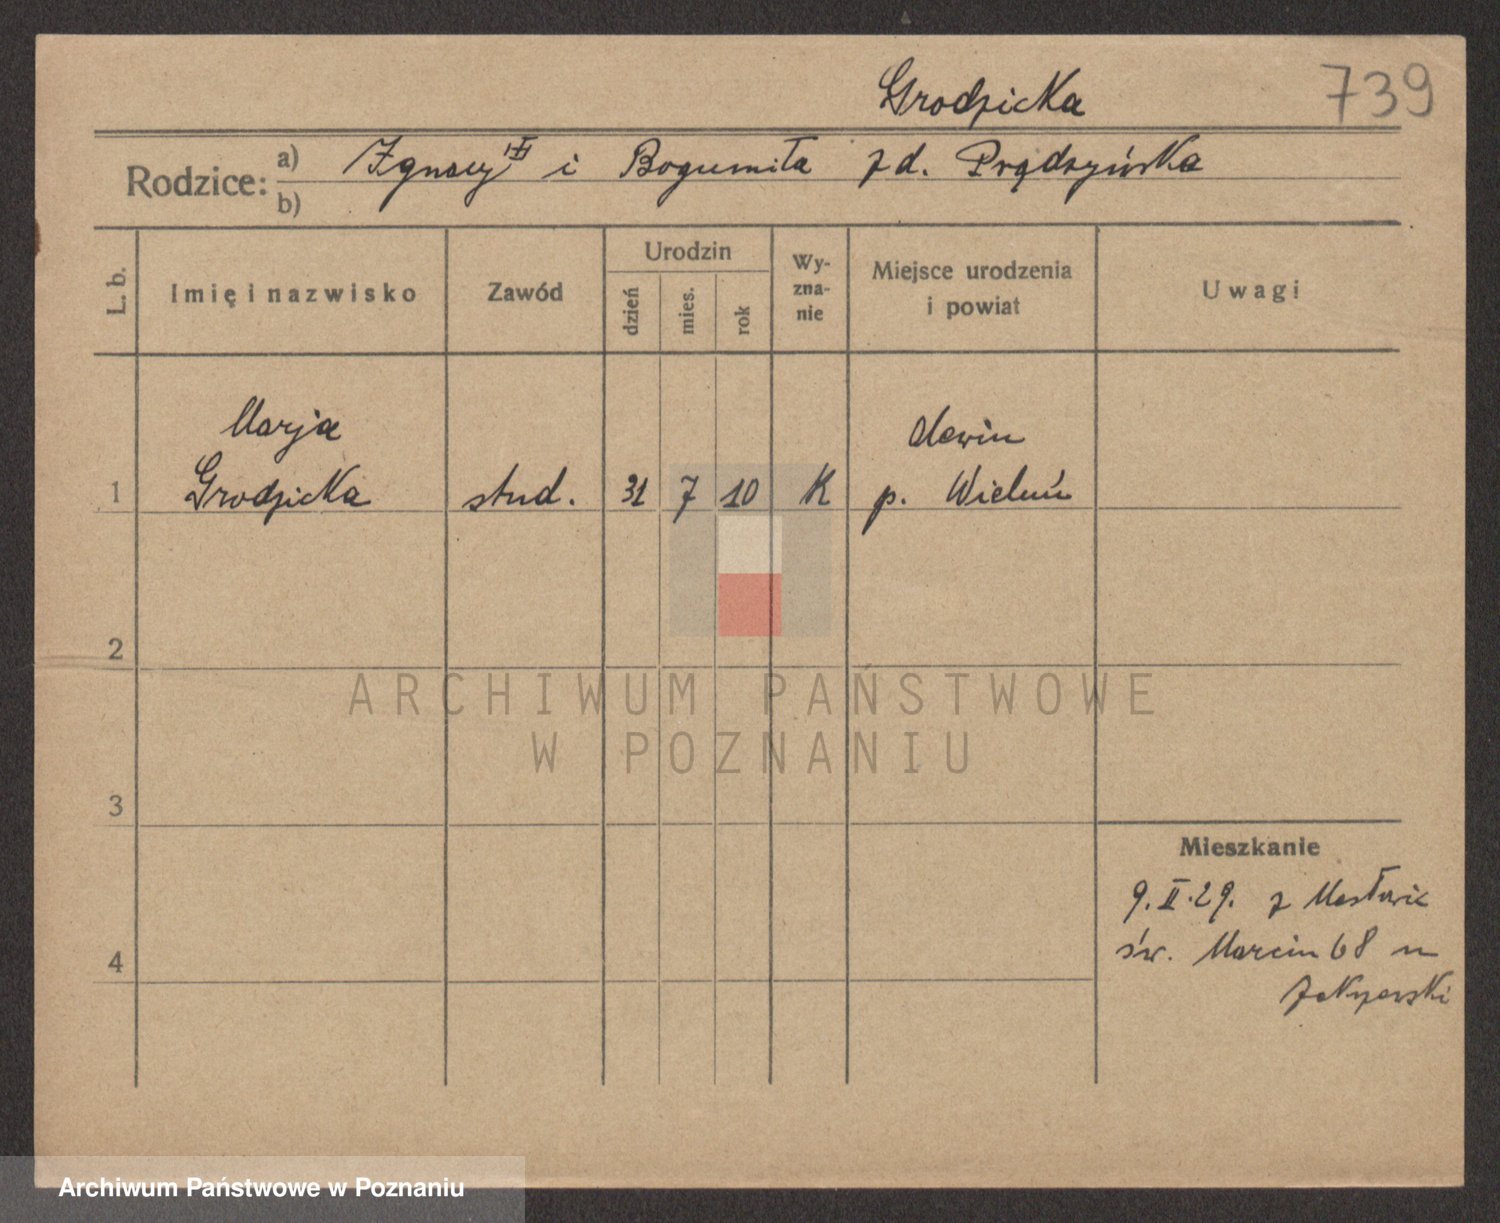 Grodzicka 739
Rodzice: a) Ignacy i Bogumiła z d. Prądzyńska
b)
L. b. Imię i nazwisko Zawód Urodzin dzień mies. rok Wy-zna-nie Miejsce urodzenia i powiat Uwagi
Marja
1 Grodzicka stud. 31 7 10 K p. Wieluń
2
3
4
Mieszkanie
9. II. 29. z
św. Marcin 68
ARCHIWUM PAŃSTWOWE
W POZNANIU
Archiwum Państwowe w Poznaniu